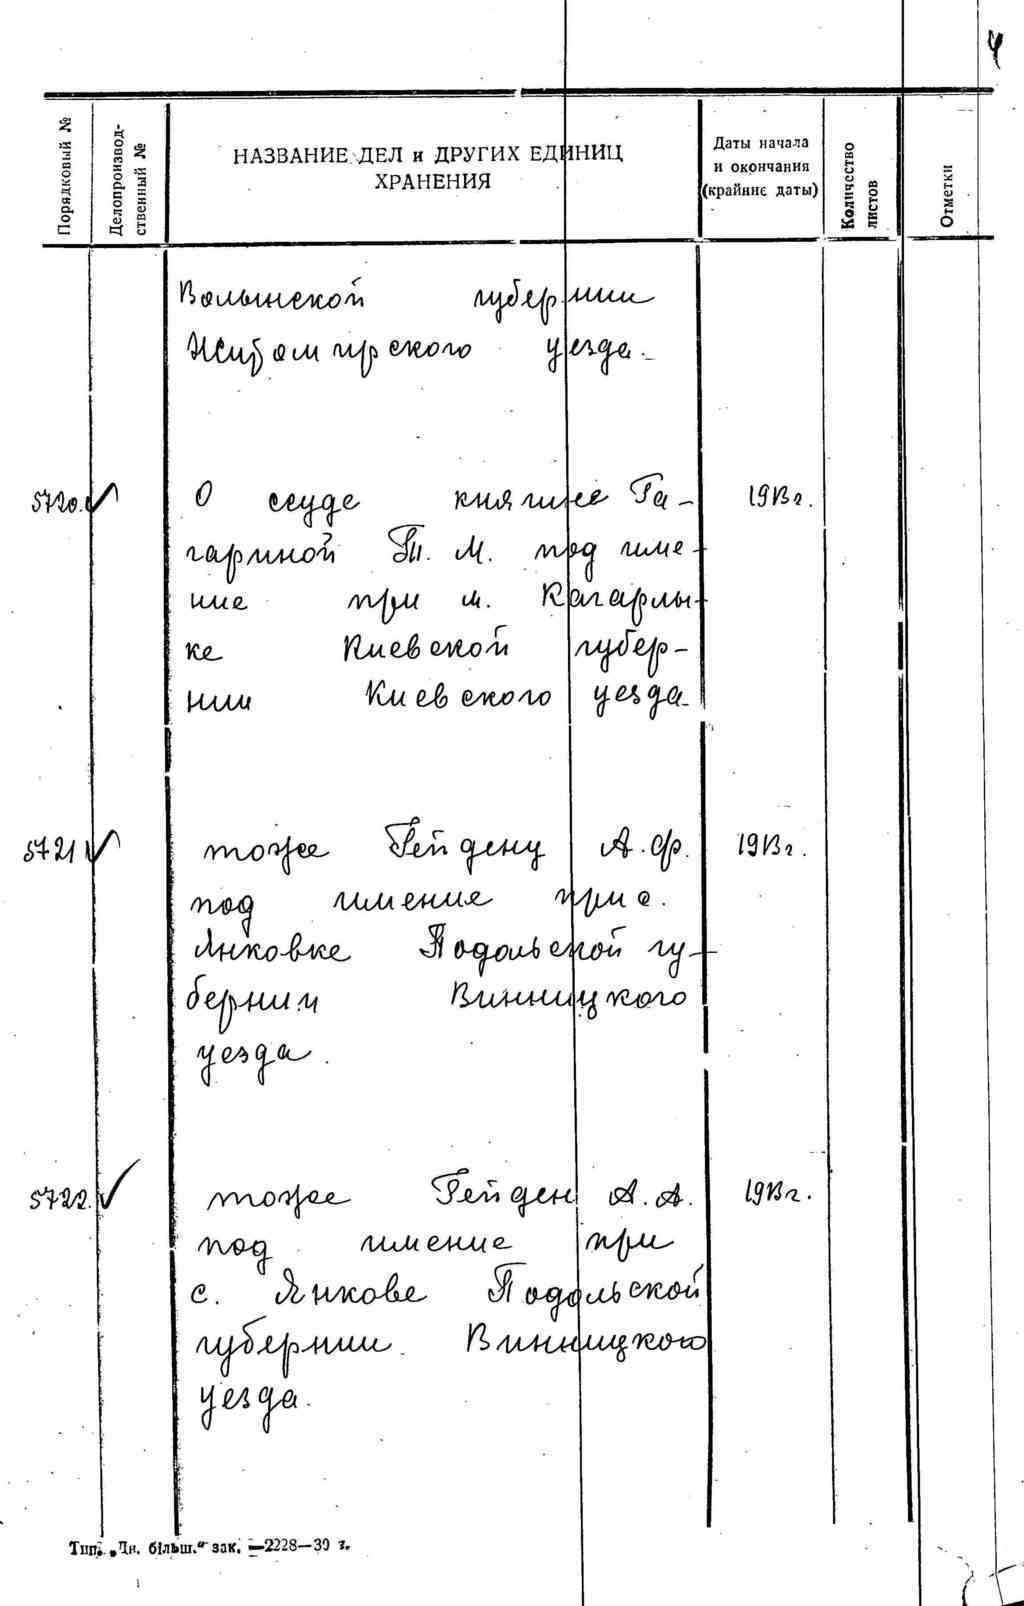 4
Порядковый №
Делопроизвод-
ственный №
НАЗВАНИЕ ДЕЛ и ДРУГИХ ЕДИНИЦ
ХРАНЕНИЯ
Даты начала
и окончания
(крайние даты)
Количество
листов
Отметки
Волынской губернии
Житомирского уезда.
5720. О ссуде княгине Га- 1913г.
гариной М. под име-
ние при м. Кагарлы-
ке Киевской губер-
нии Киевского уезда.
5721 тоже Гейдену А.Ф. 1913г.
под имение при с.
Янковке Подольской гу-
бернии Винницкого
уезда.
5722. тоже Гейден А.А. 1913г.
под имение при
с. Янкове Подольской
губернии Винницкого
уезда.
Тип. „Дн. більш.“ зак. —2228—39 г.